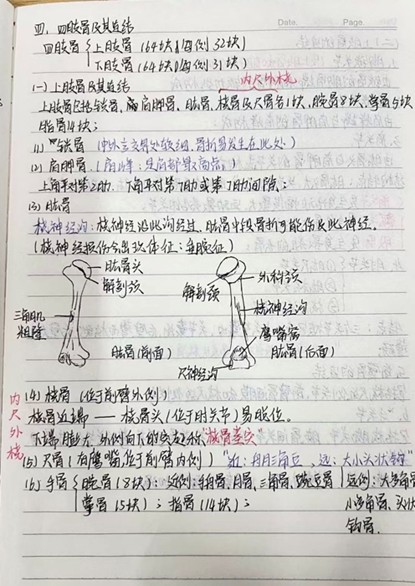 Date. Page.
四、四肢骨及其连结
四肢骨 上肢骨 (64块 每侧32块)
下肢骨 (62块 每侧31块)
(一) 上肢骨及其连结
内尺外桡
上肢骨包括锁骨、肩胛骨、肱骨、桡骨及尺骨各1块,腕骨8块、掌骨5块
指骨14块;
(1) 锁骨 (中外1/3交界处较细,骨折易发生在此处)
(2) 肩胛骨 (肩峰:是肩部最高点)
上角平对第2肋、下角平对第7肋或第7肋间隙;
(3) 肱骨
桡神经沟:桡神经沿此沟经过,肱骨中段骨折可能伤及此神经。
(桡神经损伤会出现体征:垂腕征)
肱骨头
解剖颈
三角肌
粗隆
肱骨(前面)
外科颈
解剖颈
桡神经沟
鹰嘴窝
肱骨(后面)
尺神经沟
内尺外桡
(4) 桡骨 (位于前臂外侧)
桡骨近端 —— 桡骨头 (位于肘关节) 易脱位。
下端膨大 外侧向下的突起称"桡骨茎突"
(5) 尺骨 (有鹰嘴,位于前臂内侧) "近:舟月三角豆,远:大小头状钩"
(6) 手骨 腕骨(8块):近侧:手舟骨、月骨、三角骨、豌豆骨 远侧:大多角骨
掌骨(5块);指骨(14块); 小多角骨、头状
钩骨